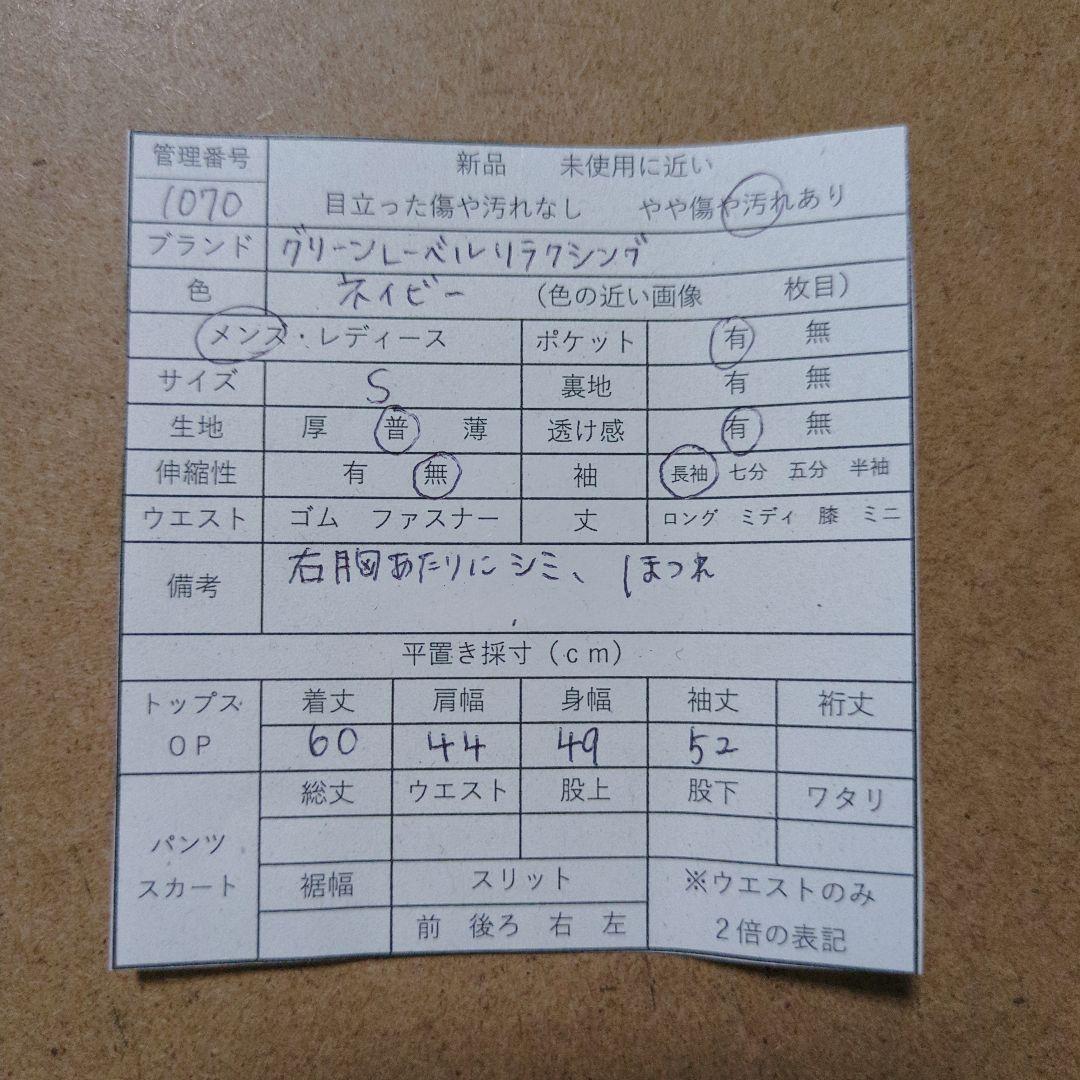 管理番号 新品 未使用に近い
1070 目立った傷や汚れなし やや傷や汚れあり
ブランド グリーンレーベルリラクシング
色 ネイビー (色の近い画像 枚目)
メンズ・レディース ポケット 有 無
サイズ S 裏地 有 無
生地 厚 普 薄 透け感 有 無
伸縮性 有 無 袖 長袖 七分 五分 半袖
ウエスト ゴム ファスナー 丈 ロング ミディ 膝 ミニ
備考 右胸あたりにシミ、ほつれ
平置き採寸(cm)
トップス 着丈 肩幅 身幅 袖丈 裄丈
OP 60 44 49 52
総丈 ウエスト 股上 股下 ワタリ
パンツ
スカート 裾幅 スリット ※ウエストのみ
前 後ろ 右 左 2倍の表記